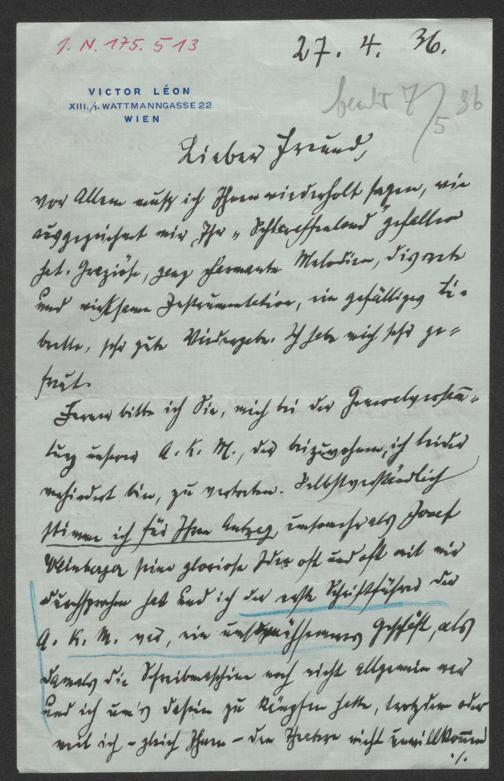 I. N. 175.513
27. 4. 36.
VICTOR LÉON
XIII./1. WATTMANNGASSE 22
WIEN
beantw 7/5 36
Lieber Freund,
vor Allem muß ich Ihnen wiederholt sagen, wie
ausgezeichnet mir Ihr „Schlaraffenland" gefallen
hat. Graziöse, ganz charmante Melodien, diskrete
und wirksame Instrumentation, ein gefälliges Li-
bretto, sehr gute Wiedergabe. Ich habe mich sehr ge-
freut.
Ferner bitte ich Sie, mich bei der Generalversamm-
lung unserer A. K. M., der beizuwohnen, ich leider
verhindert bin, zu vertreten. Selbstverständlich
stimme ich für Ihren Antrag, umsomehr als Josef
Weinberger seine gloriose Idee oft und oft mit mir
durchsprochen hat und ich der erste Schriftführer der
A. K. M. war, ein Geschäft, als
damals die Schreibmaschine noch nicht allgemein war
und ich um's Dasein zu kämpfen hatte, trotzdem oder
weil ich – gleich Ihnen – den Theatern nicht unwillkommen
./.